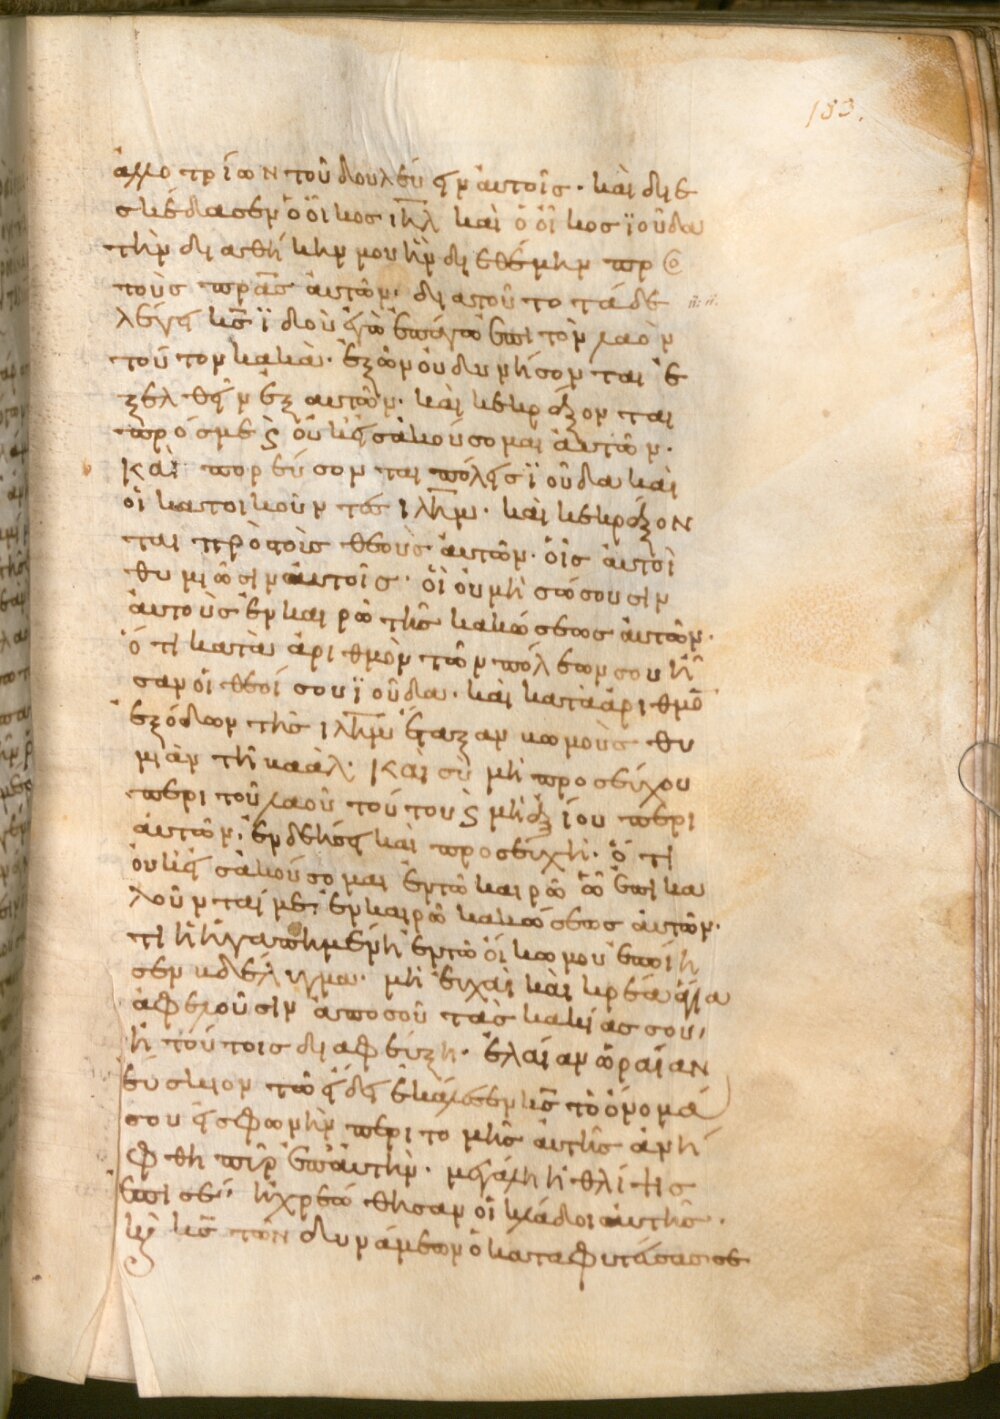 183.
ἀλλοτρίων τοῦ δουλεύειν αὐτοῖς· καὶ διε
σκέδασεν ὁ οἶκος ιηλ καὶ ὁ οἶκος ϊούδα
τὴν διαθήκην μου ἣν διεθέμην πρ
τοὺς πρας αὐτῶν· διατοῦτο τάδε
λέγει κς ϊδοὺ ἐγὼ ἐπάγω ἐπι τὸν λαὸν
τοῦτον κακὰ· ἐξ ὧν οὐ δυνήσονται ἐ
ξελθεῖν ἐξ αυτῶν· καὶ κεκράξονται
πρόσμε ϛ οὐκ εἰσακούσομαι αὐτῶν·
Καὶ πορεύσονται πόλεις ϊούδα καὶ
οἱ κατοικοῦντες ιλημ· καὶ κεκράξον
ται πρὸς τοὺς θεοὺς αὐτῶν· οἷς αὐτοὶ
θυμιῶσιν αυτοῖς· οἳ οὐ μὴ σώσουσιν
αὐτοὺς ἐν καιρῶ τῆς κακώσεως αὐτῶν·
ὅτι κατὰ ἀριθμὸν τῶν πόλεων σου ἦ
σαν οἱ θεοί σου ϊούδα· καὶ κατὰ ἀριθμὸ
ἐξόδων τῆς ιλημ ἔταξαν κωμοὺς θυ
μιᾶν τῆ βαὰλ· Καὶ σὺ μὴ προσεύχου
περι τοῦ λαοῦ τούτου ϛ μὴ ἀξίου περι
αὐτῶν· ἐν δεήσει καὶ προσευχῆ· ὅτι
οὐκ εἰσακούσομαι ἐν τῶ καιρῶ ὧ ἐπικα
λοῦνταί με· ἐν καιρῶ κακώσεως αὐτῶν·
τί ἡ ἠγαπημένη ἐν τῶ οἴκω μου ἐποίη
σεν βδέλυγμα· μὴ εὐχαὶ καὶ κρέα ἅγια
ἀφελοῦσιν ἀπο σοῦ τὰς κακίας σου,
ἢ τούτοις διαφεύξη· ἐλαίαν ὡραίαν
εὔσκιον τῶ εἴδει ἐκάλεσεν κς τὸ ὄνομά
σου εἰς φωνὴν περιτομῆς αὐτῆς ἀνή
φθη πῦρ ἐπ αὐτὴν· μεγάλη ἡ θλίψις
ἐπι σέ· ἠχρεώθησαν οἱ κλάδοι αὐτῆς·
κς τῶν δυνάμεων ὁ καταφυτεύσας σε